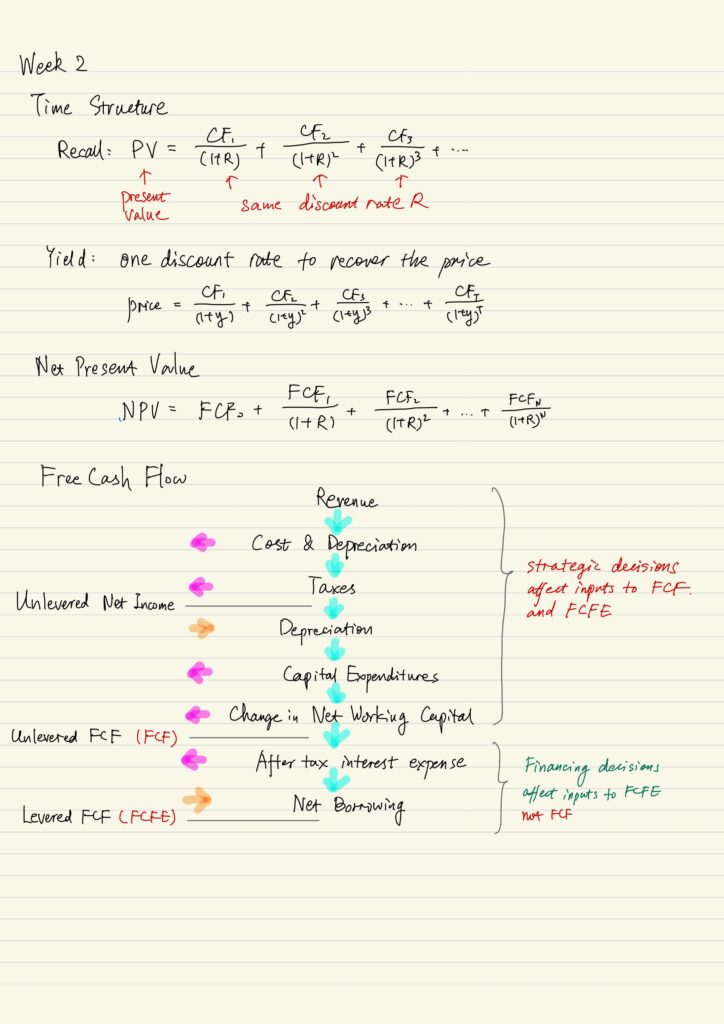 Week 2
Time Structure
Recall: PV = CF₁/(1+R) + CF₂/(1+R)² + CF₃/(1+R)³ + ....
present value
same discount rate R
Yield: one discount rate to recover the price
price = CF₁/(1+y) + CF₂/(1+y)² + CF₃/(1+y)³ + ... + CF_T/(1+y)^T
Net Present Value
NPV = FCF₀ + FCF₁/(1+R) + FCF₂/(1+R)² + ... + FCF_N/(1+R)^N
Free Cash Flow
Revenue
Cost & Depreciation
Taxes
Unlevered Net Income
Depreciation
Capital Expenditures
Change in Net Working Capital
Unlevered FCF (FCF)
After tax interest expense
Net Borrowing
Levered FCF (FCFE)
strategic decisions
affect inputs to FCF.
and FCFE
Financing decisions
affect inputs to FCFE
not FCF